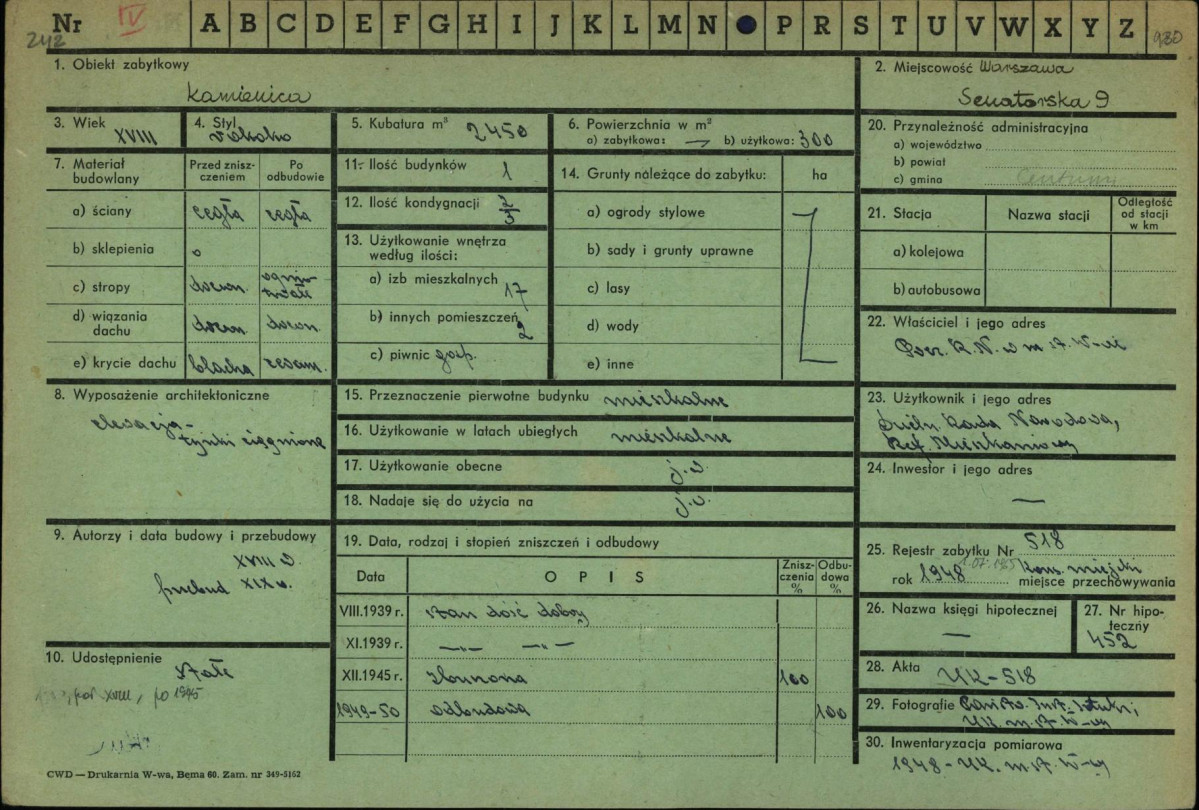 Nr IV A B C D E F G H I J K L M N P R S T U V W X Y Z
242
980
1. Obiekt zabytkowy
Kamienica
2. Miejscowość Warszawa
Senatorska 9
3. Wiek
XVIII
4. Styl
rokoko
5. Kubatura m³ 2450
6. Powierzchnia w m²
a) zabytkowa: — b) użytkowa: 300
7. Materiał budowlany
Przed zniszczeniem
Po odbudowie
a) ściany cegła cegła
b) sklepienia o
c) stropy drewn. ogniotrwałe
d) wiązania dachu drewn. drewn.
e) krycie dachu blacha
8. Wyposażenie architektoniczne
elewacja -
tynki ciągnione
9. Autorzy i data budowy i przebudowy
XVIII w
przebud XIX w.
10. Udostępnienie
stałe
poł XVIII, po 1945
11. Ilość budynków 1
12. Ilość kondygnacji
13. Użytkowanie wnętrza
według ilości:
a) izb mieszkalnych 17
b) innych pomieszczeń 2
c) piwnic gosp.
14. Grunty należące do zabytku: ha
a) ogrody stylowe
b) sady i grunty uprawne
c) lasy
d) wody
e) inne
15. Przeznaczenie pierwotne budynku mieszkalne
16. Użytkowanie w latach ubiegłych mieszkalne
17. Użytkowanie obecne j.w.
18. Nadaje się do użycia na j.w.
19. Data, rodzaj i stopień zniszczeń i odbudowy
Data
OPIS
Zniszczenia %
Odbudowa %
VIII.1939 r. stan dość dobry
XI.1939 r. —„— —„—
XII.1945 r. zburzona 100
1949-50 odbudowa 100
20. Przynależność administracyjna
a) województwo
b) powiat
c) gmina Centrum
21. Stacja
Nazwa stacji
Odległość od stacji w km
a) kolejowa
b) autobusowa
22. Właściciel i jego adres
Prez. R.N. w m. st. W-wie
23. Użytkownik i jego adres
Dzieln. Rada Narodowa,
Ref. Mieszkaniowy
24. Inwestor i jego adres
—
25. Rejestr zabytku Nr 518
1.07.1965
rok 1948 Kons. miejski
miejsce przechowywania
26. Nazwa księgi hipotecznej
—
27. Nr hipoteczny
452
28. Akta UK-518
29. Fotografie Państw. Inst. Sztuki,
UK. m. st. W-wy
30. Inwentaryzacja pomiarowa
1948 - UK. m. st. W-wy
CWD — Drukarnia W-wa, Bema 60. Zam. nr 349-5162